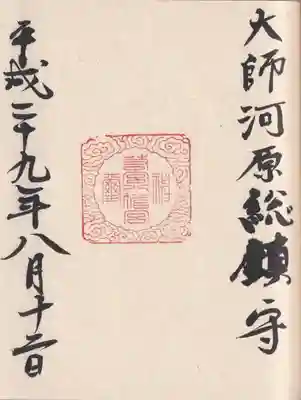 大師河原総鎮守
平成二十九年八月十二日